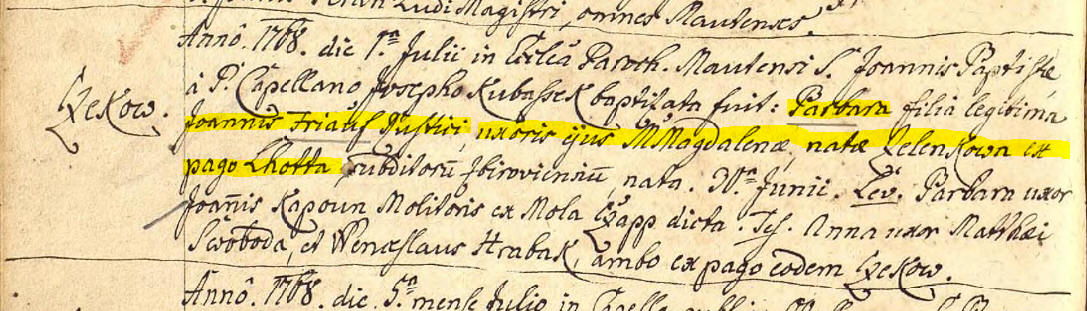 Ludi Magistri, omnes Mautenses.
Annô. 1768. die 1.ª Julii in Ecclâ Paroch. Mautensi S. Joannis Baptistæ
Czekow.
à P. Capellano Josepho Kubassek baptizata fuit: Barbara filia legitima
Joannis Friauf Justici, uxoris ejus M Magdalenæ, natæ Zelenkowa ex
pago Lhotta subditorū Zbirovienniū, nata. 30.ª Junii. Lev. Barbara uxor
Joannis Kapoun Molitoris ex Mola dicta. Tes. Anna uxor Matthæi
Swoboda, et Wenceslaus Hrabak, ambo ex pago eodem Czekow.
Annô. 1768. die. 5.ª mense Julio in